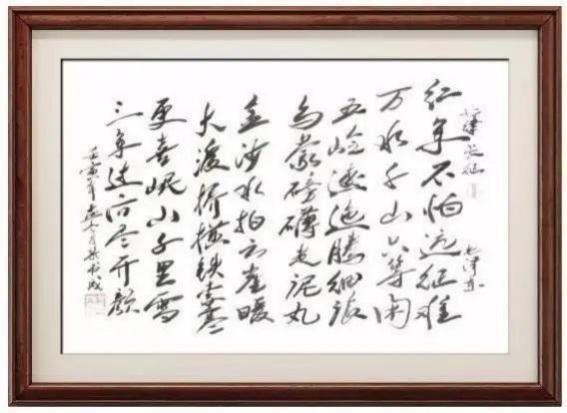 七律 长征 毛泽东
红军不怕远征难
万水千山只等闲
五岭逶迤腾细浪
乌蒙磅礴走泥丸
金沙水拍云崖暖
大渡桥横铁索寒
更喜岷山千里雪
三军过后尽开颜
壬寅年七月